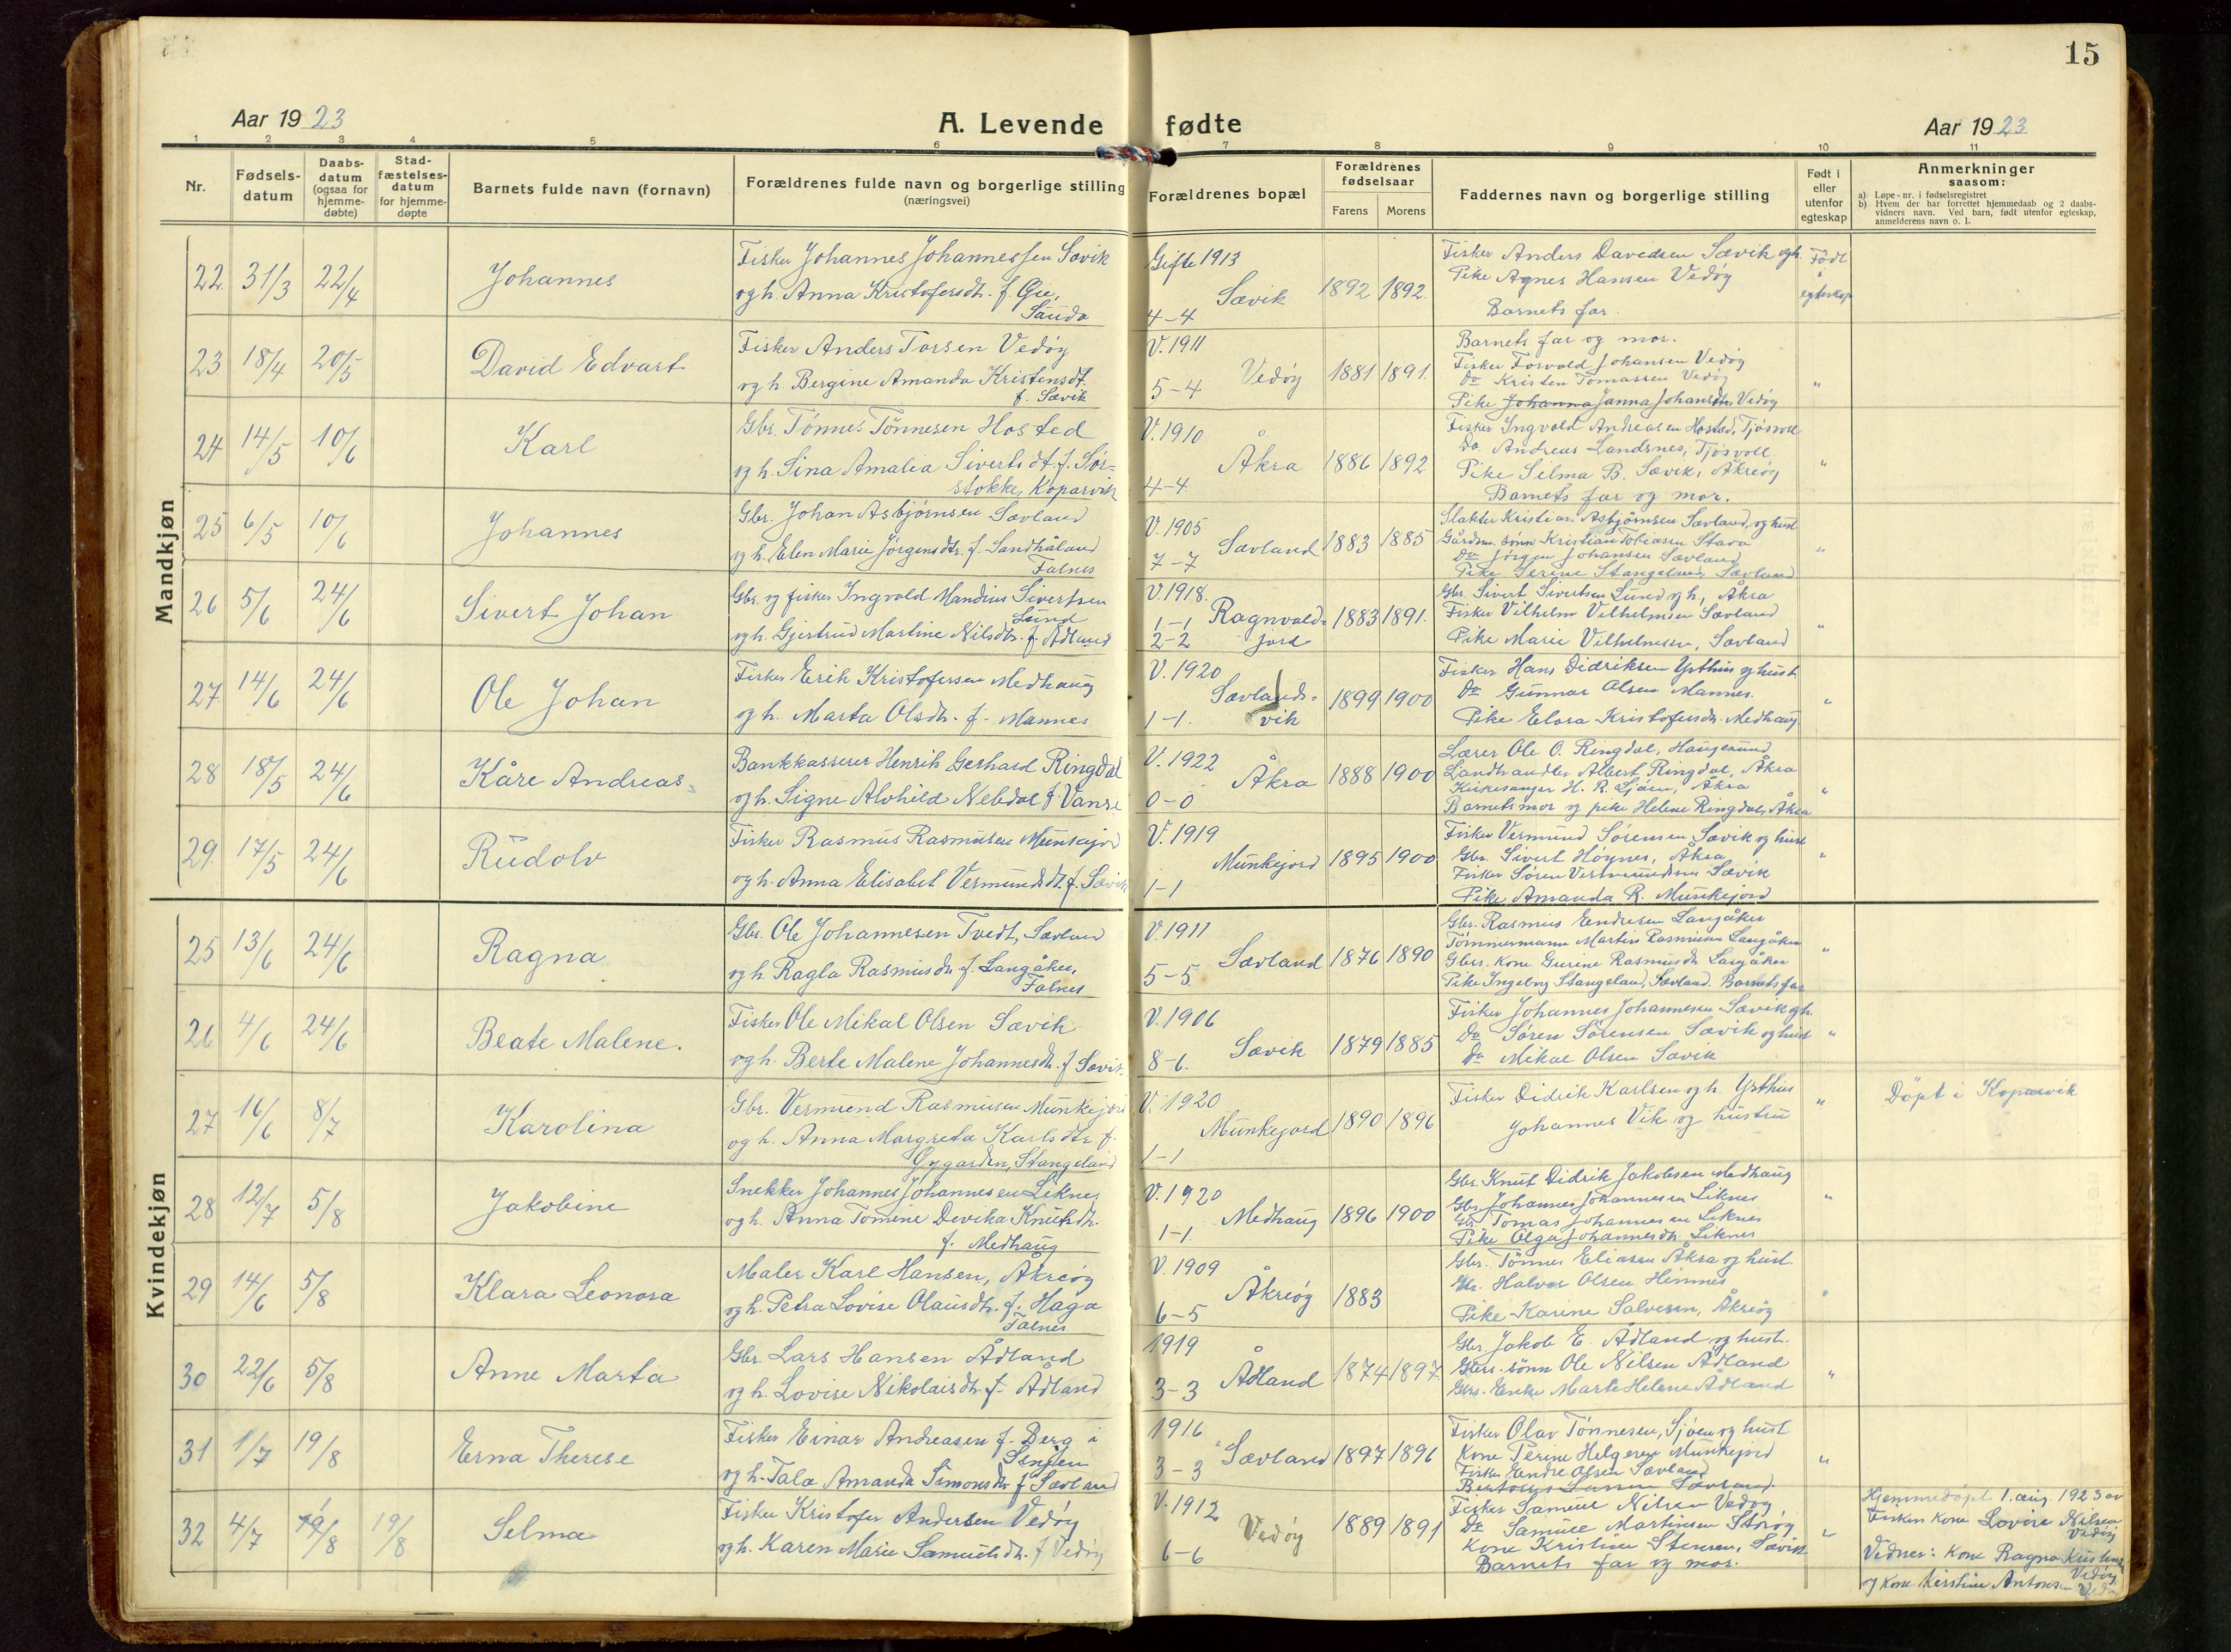 15
Aar 1923
A. Levende fødte
Aar 1923
1 2 3 4 5 6 7 8 9 10 11
Nr.
Fødsels-
datum
Daabs-
datum
(ogsaa for
hjemme-
døbte)
Stad-
fæstelses-
datum
for hjemme-
døpte
Barnets fulde navn (fornavn)
Forældrenes fulde navn og borgerlige stilling
(næringsvei)
Forældrenes bopæl
Forældrenes
fødselsaar
Farens Morens
Faddernes navn og borgerlige stilling
Født i
eller
utenfor
egteskap
Anmerkninger
saasom:
a) Løpe-nr. i fødselsregistret
b) Hvem der har forrettet hjemmedaab og 2 daabs-
vidners navn. Ved barn, født utenfor egteskap,
anmelderens navn o. l.
Mandkjøn
22 31/3 22/4 Johannes
Fisker Johannes Johannessen Sævik
og h. Anna Kristofersdtr. f. Gje,
Sauda
Gifte 1913
4-4 Sævik 1892 1892
Fisker Anders Davidsen Sævik og h.
Pike Agnes Hansen Vedøy
Barnets far
Født
i
egteskap
23 18/4 20/5 David Edvart
Fisker Anders Torsen Vedøy
og h. Bergine Amanda Kristensdt.
f. Sævik
V. 1911
5-4 Vedøy 1881 1891
Barnets far og mor.
Fisker Torvald Johansen Vedøy
Do Kristen Tomassen Vedøy
Pike Johanna Janna Johansdtr. Vedøy
"
24 14/5 10/6 Karl
Gbr. Tönnes Tönnesen Hosted
og h. Sina Amalia Sivertsdt. f. Sör-
stokke, Kopervik
V. 1910
4-4 Åkra 1886 1892
Fisker Ingvald Andreasen Hosted, Tjösvoll
Do Andreas Landsnes, Tjösvoll.
Pike Selma B. Sævik, Åkreöy
Barnets far og mor.
"
25 6/5 10/6 Johannes
Gbr. Johan Asbjørnsen Sævland
og h. Elen Marie Jörgensdtr. f. Sandhåland
Falnes
V. 1905
7-7 Sævland 1883 1885
Slakter Kristian Asbjörnsen Sævland, og hust
Gårdm. sönn Kristian Tobiasen Stava
Do Jörgen Johansen Sævland
Pike Serine Stangeland, Sævland
"
26 5/6 24/6 Sivert Johan
Gbr. og fisker Ingvald Mandius Sivertsen
Lund
og h. Gjertrud Martine Nilsdtr. f. Ådland
V. 1918.
1-1
2-2 Ragnvald-
jord 1883 1891.
Gbr. Sivert Sivertsen Lund og h, Åkra
Fisker Vilhelm Vilhelmsen Sævland
Pike Marie Vilhelmsen, Sævland
"
27 14/6 24/6 Ole Johan
Fisker Erik Kristofersen Medhaug
og h. Marta Olsdtr. f. Mannes
V. 1920
1-1. Sævlands-
vik 1899 1900
Fisker Hans Didriksen Ytthus og hust
Do Gunnar Olsen Mannes.
Pike Elvra Kristofersdtr. Medhaug
"
28 18/5 24/6 Kåre Andreas
Bankkasserer Henrik Gerhard Ringdal
og h. Signe Alvhild Nebdal f. Vanse
V. 1922
0-0 Åkra 1888 1900
Lærer Ole O. Ringdal, Haugesund
Landhandler Albert Ringdal, Åkra
Kirkesanger H. R. Sjøen, Åkra
Barnets mor og pike Helene Ringdal, Åkra
"
29. 17/5 24/6 Rudolv
Fisker Rasmus Rasmussen Munkejord
og h. Anna Elisabet Vermundsdt. f. Sævik
V. 1919
1-1 Munkejord 1895 1900
Fisker Vermund Sörensen Sævik og hust
Gbr. Sivert Höynes, Åkra
Fisker Sören Vermundsen Sævik
Pike Amanda R. Munkejord
"
Kvindekjøn
25 13/6 24/6 Ragna
Gbr. Ole Johannesen Tvedt, Sævland
og h. Ragla Rasmusdtr. f. Langåker,
Falnes
V. 1911
5-5 Sævland 1876 1890
Gbr. Rasmus Endresen Langåker
Tömmermann Martin Rasmusen Langåker
Gbrs. kone Gurine Rasmusdtr. Langåker
Pike Ingeborg Stangeland, Sævland. Barnets far
"
26 4/6 24/6 Beate Malene.
Fisker Ole Mikal Olsen Sævik
og h. Berte Malene Johannesdtr. f. Sævik
V. 1906
8-6. Sævik 1879 1885
Fisker Johannes Johannesen Sævik og h.
Do Sören Sörensen Sævik og hust
Do Mikal Olsen Sævik
"
27 16/6 8/7 Karolina
Gbr. Vermund Rasmusen Munkejord
og h. Anna Margreta Karlsdtr. f.
Øygarden, Stangeland
V. 1920
1-1 Munkejord 1890 1896
Fisker Didrik Karlsen og h. Ytthus
Johannes Vik og hustru
"
Döpt i Kopervik
28 12/7 5/8 Jakobine
Snekker Johannes Johannesen Liknes
og h. Anna Tomine Devika Knutsdtr.
f. Medhaug
V. 1920
1-1. Medhaug 1896 1900
Gbr. Knut Didrik Jakobsen Medhaug
Gbr. Johannes Johannesen Liknes
Gbr. Tomas Johannesen Liknes
Pike Olga Johannesdtr. Liknes
"
29 14/6 5/8 Klara Leonora
Maler Karl Hansen, Åkreöy
og h. Petra Lovise Olausdtr. f. Haga
Falnes
V. 1909
6-5 Åkreöy 1883
Gbr. Tönnes Eliasen Åkra og hust.
Gbr. Halvor Olsen Hemnes
Pike Karine Salvesen, Åkreöy
"
30 22/6 5/8 Anne Marta
Gbr. Lars Hansen Ådland
og h. Lovise Nikolaisdtr. f. Ådland
1919
3-3 Ådland 1874 1897.
Gbr. Jakob E. Ådland og hust.
Gbrs. sönn Ole Nilsen Ådland
Gbrs. Enke Marte Helene Ådland
"
31 1/7 19/8 Erna Therese
Fisker Einar Andreasen f. Berg i
Senjen
og h. Tala Amanda Simonsdtr. f. Sævland
1916
3-3 Sævland 1897 1896
Fisker Olav Tönnesen, Sjöen og hust
Kone Perine Helgesen Munkejord
Fisker Endre Olsen Sævland
Sævland
"
32 4/7 19/8 19/8 Selma
Fisker Kristofer Andersen Vedöy
og h. Karen Marie Samuelsdtr. f. Vedöy
V. 1912
6-6 Vedøy 1889 1891
Fisker Samuel Nilsen Vedøy,
Do Samuel Martinsen Storöy
Kone Kristine Stensen, Sævik
Barnets far og mor.
"
Hjemmedöpt 1. aug. 1923 av
Fiskers kone Lovise Nilsen
Vedöy
Vidner: kone Ragna Kristensen
Vedöy
og kone Kirstine Antonsen Vedøy